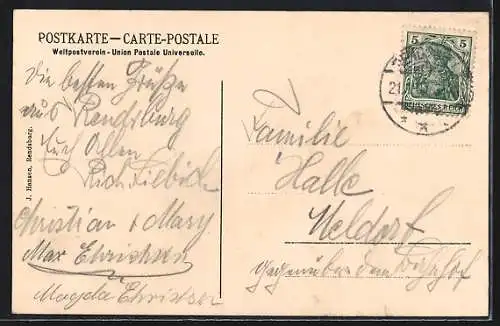 POSTKARTE — CARTE-POSTALE
Weltpostverein - Union Postale Universelle.
Die besten Grüße
aus Rendsburg
Euch Allen
Christian & Mary
Max Christensen
Magda Christensen
J. Hansen, Rendsburg.
5 5
DEUTSCHES REICH
21
Familie
Halle
Meldorf
gegenüber dem Bahnhof